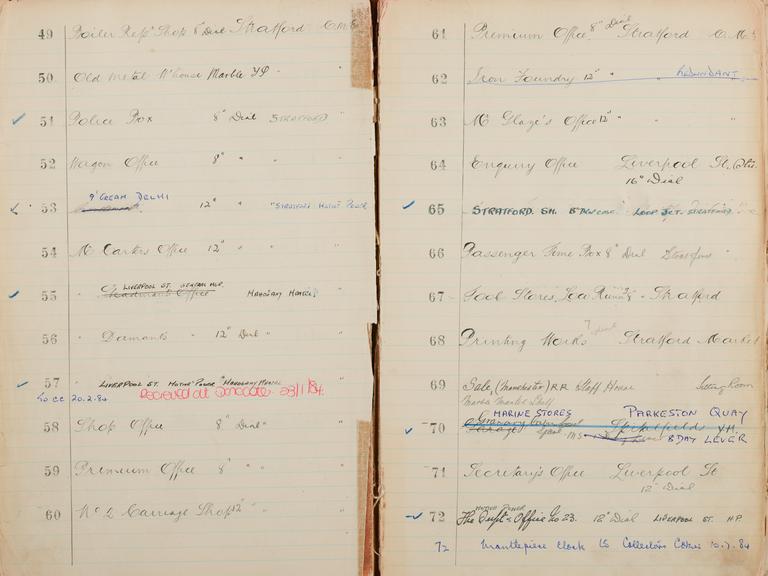 49 Boiler Rep^s Shop 8" Dial Stratford
50 Old Metal W'house Marble T.P.
51 Police Box 8" Dial STRATFORD "
52 Wagon Office 8" " "
9" GCEAM DELHI
53 12" " "STRATFORD MOTIVE POWER
54 M^r Carters Office 12" " "
LIVERPOOL ST. GENERAL H.P.
55 " Office MAHOGANY MANTEL
56 " Damants " 12" Dial "
57 " LIVERPOOL ST. MOTIVE POWER "MAHOGANY MANTEL
To CC 20.2.84 Received at 23/1/84.
58 Shop Office 8" Dial "
59 Premium Office 8" " "
60 N° 2 Carriage Shop 12" " "
61 Premium Office 8" Dial Stratford
62 Iron Foundry 12" " " REDUNDANT
63 M^r Glaze's Office 12" " "
64 Enquiry Office Liverpool St.
16" Dial
65 STRATFORD LOOP JCT. STRATFORD
66 Passenger Time Box 8" Dial Stratford
67 Tool Stores, Stratford
68 Printing Works 7" Dial Stratford Market
69 Sale, (Manchester) RR Staff House Sitting Room
MARINE STORES PARKESTON QUAY
70 Spitalfields Y.M.
8 DAY LEVER
71 Secretary's Office Liverpool St
12" Dial
MOTIVE POWER
72 The Supt^s Office No 23. 12" Dial LIVERPOOL ST. H.P.
72 Mantlepiece clock to Collectors Corner 10.7.84